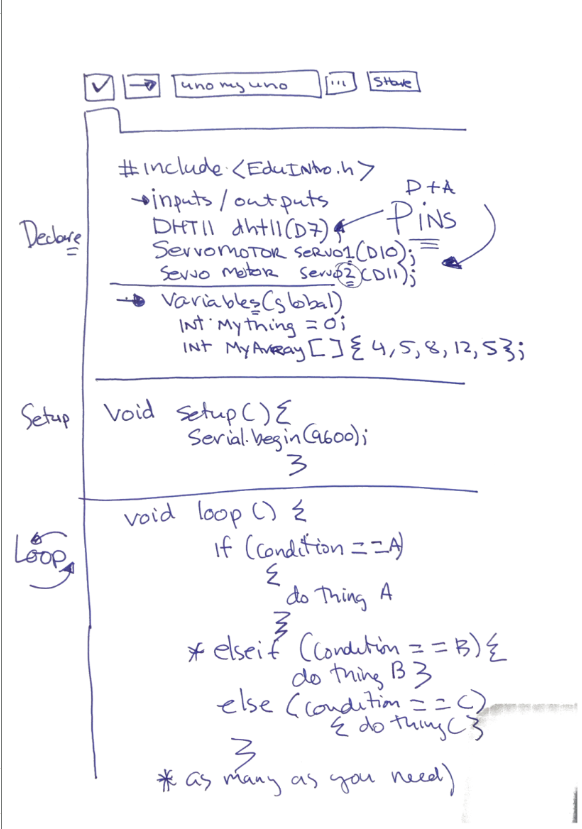 uno my uno ... Share
#include <EduIntro.h>
→ inputs / outputs
D+A
DHT11 dht11(D7);
PINS
Declare
Servomotor servo1(D10);
Servo Motor servo2(D11);
→ Variables (global)
INT Mything = 0;
INT MyArray [ ] { 4, 5, 8, 12, 5};
Setup
Void setup() {
Serial.begin(9600);
}
void loop () {
Loop
if (condition == A)
{
do Thing A
}
* elseif (condition == B) {
do thing B }
else (condition == C)
{ do thing C }
}
* as many as you need)